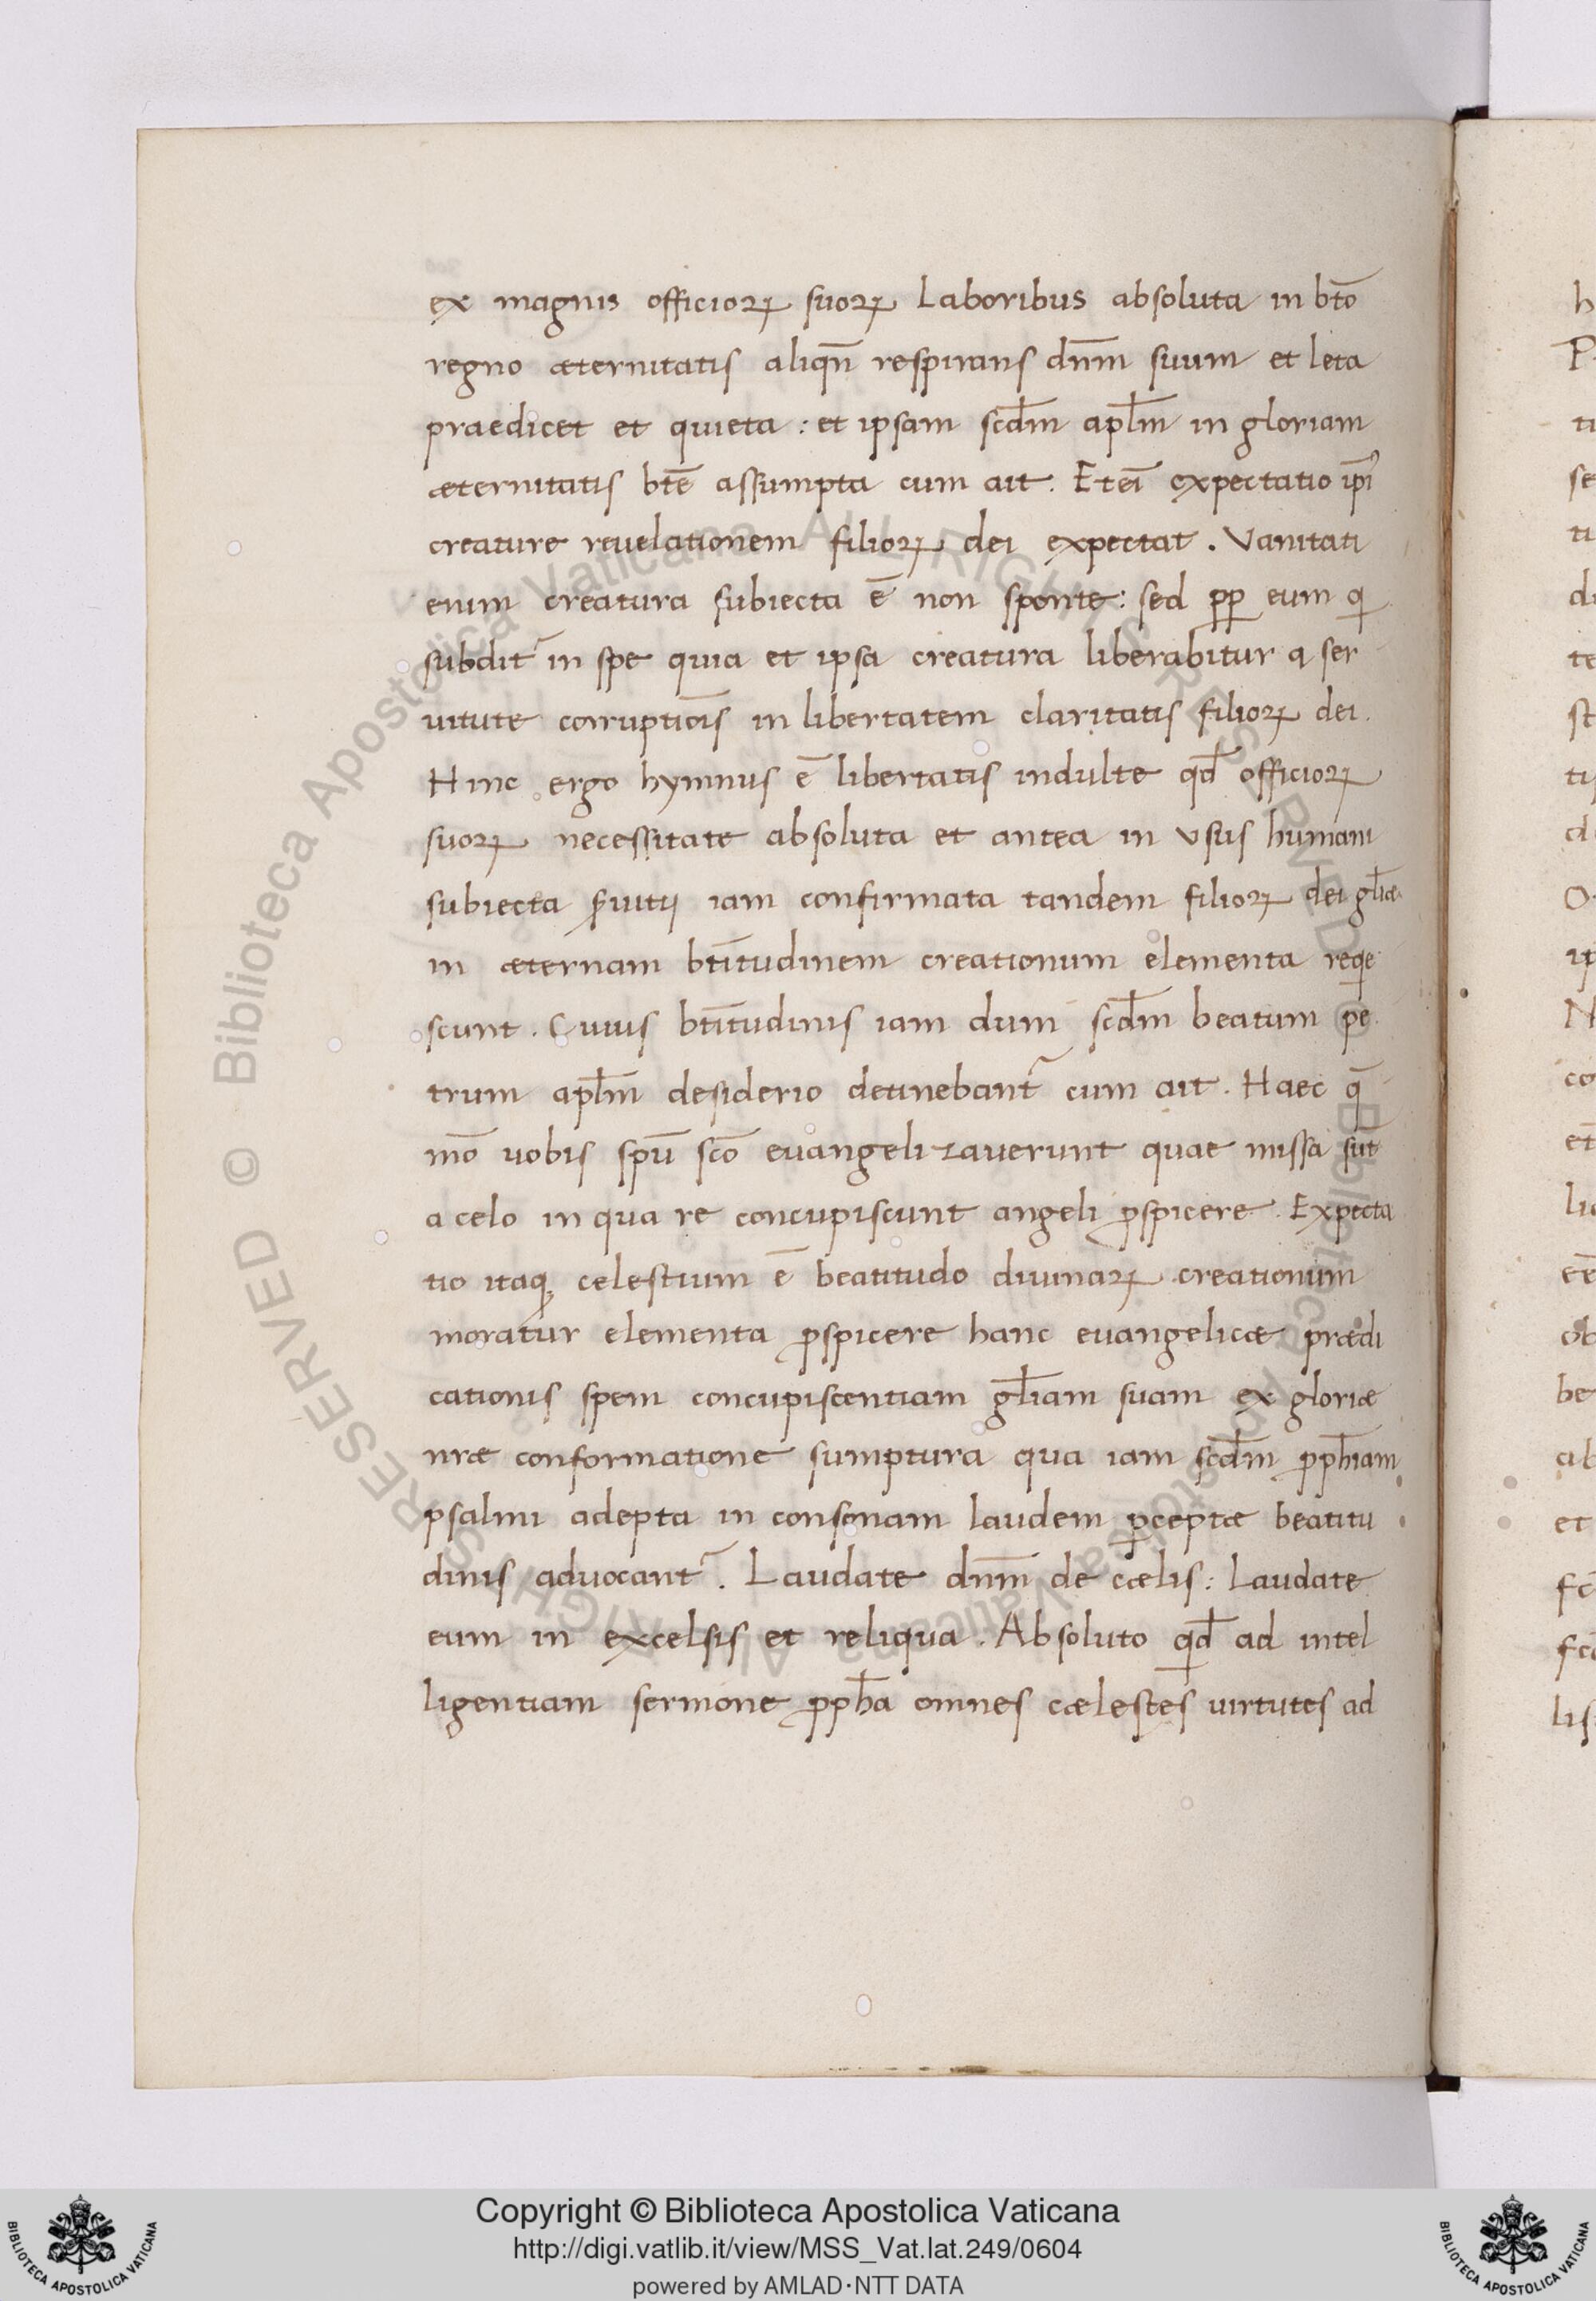 ex magnis officioꝝ suoꝝ Laboribus absoluta in bt̄o
regno æternitatis aliqn̄ respirans dn̄m suum et leta
praedicet et quieta : et ipsam scd̄m apl̄m in gloriam
æternitatis bt̄e assumpta cum ait . Et eī expectatio ip̄i
creature reuelationem filioꝝ dei expectat . Vanitati
enim creatura subiecta ē non sponte : sed ꝓp eum q
subdit᷑ in spe quia et ipsa creatura liberabitur a ser
uitute corruptiōis in libertatem claritatis filioꝝ dei .
Hinc ergo hymnus ē libertatis indulte qd̄ officioꝝ
suoꝝ necessitate absoluta et antea in vsus humani
subiecta s̄uitij iam confirmata tandem filioꝝ dei gl̄iæ
in æternam bt̄itudinem creationum elementa reqe
scunt . Cuius bt̄itudinis iam dum scd̄m beatum pe
trum apl̄m desiderio detinebant᷑ cum ait . Haec q̄
mō uobis spū scō euangelizauerunt quae missa sūt
a celo in qua re concupiscunt angeli ꝓspicere . Expecta
tio itaqꝫ celestium ē beatitudo diuinaꝝ creationum
moratur elementa ꝓspicere hanc euangelicæ prædi
cationis spem concupiscentiam gl̄iam suam ex gloriæ
nræ conformatione sumptura qua iam scd̄m ꝓph̄iam
psalmi adepta in consonam laudem ꝑceptæ beatitu
dinis aduocant᷑ . Laudate dn̄m de cælis : Laudate
eum in excelsis et reliqua . Absoluto qd̄ ad intel
ligentiam sermone ꝓph̄a omnes cælestes uirtutes ad
Copyright © Biblioteca Apostolica Vaticana
http://digi.vatlib.it/view/MSS_Vat.lat.249/0604
powered by AMLAD·NTT DATA